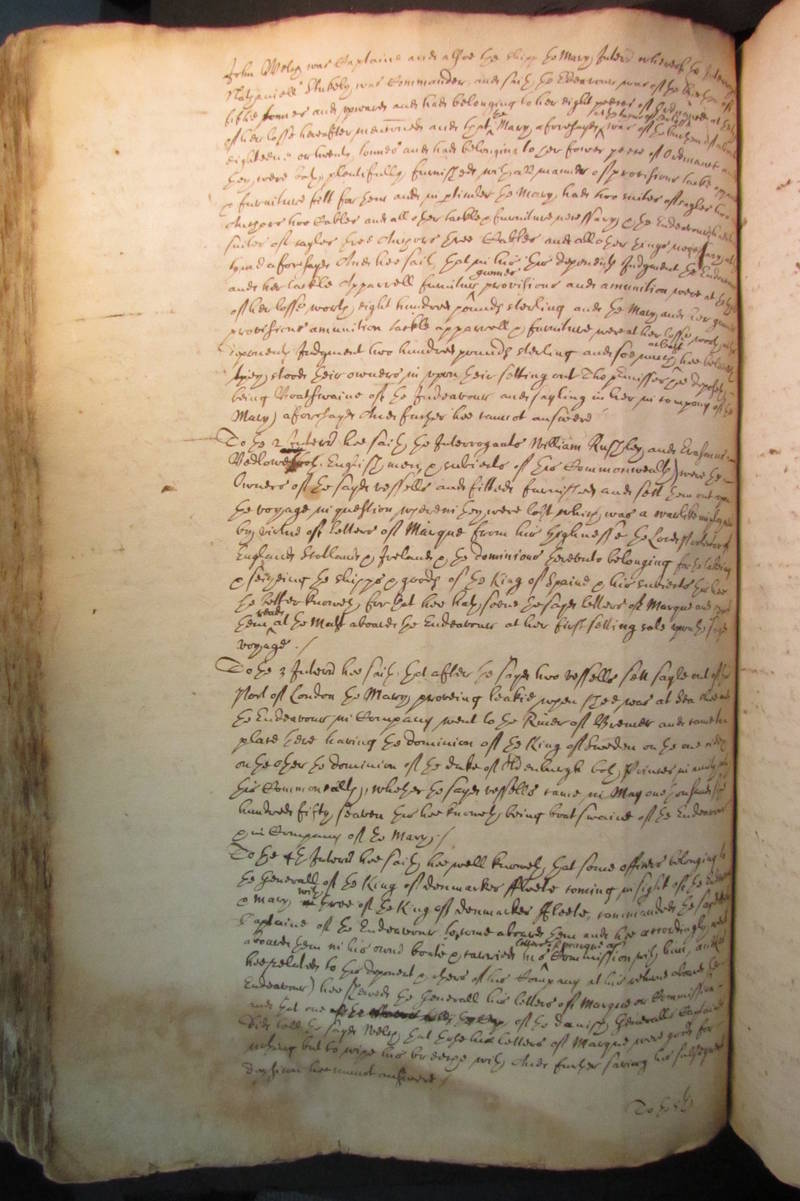 John Welch was Captaine and alsoe the shipp the Mary Interrate whereof the Interrogate
Nathaniell Stukely was Commander, and saith the Endeavour was of the burthen of
fiftie tonnes and upwards and had belonging to her eight peeces of Ordnance at the
of her losse hereafter mentioned and that the Mary aforesayd was of the burthen of about
eighteene or twenty tonnes and had belonging to her fower peece of Ordnance and
they were both plentifully furnished with all manner of provisions tackle
& furniture fitt for them and in perticuler the Mary had two suites of sayles two
Anchors two Cables and all other tackle & furniture necessary, & the Endeavour had
suites of sayles three Anchors three Cables and all other things necessary
aforesayd And hee saith that in his this deponents Judgment the Endeavour
and her tackle Apparrell furniture gunnes provisions and amunition were at the tyme
of her losse worth eight hundred pounds sterling and the Mary and her gunnes
provisions amunition tackle apparrell & furniture were at her losse worth in this
deponents Judgment two hundred pounds sterling and soe much at least hee beleeveth
they stood their owners in upon their setting out The premisses hee deposeth
being Boatswaine of the Endeavour and sayling in her in company of the
Mary aforesayd And further hee cannot answere
To the 2 Interrie hee saith the Interrogants William Rushley and Erasmus
English men & subiects of this Commonwealth were the
Owners of the sayd vessells and fitted furnished and sett them out upon
the voyage in question wherein they were lost which was a warlike
by virtue of letters of Marque from his highnesse the Lord Protector of
England Scotland & Ireland & the dominions thereunto belonging for the takeing
& seizeing the shipps & goods of the King of Spaine & his subiects this hee
the better knoweth for that hee hath seene the sayd letters of Marque and
them read at the Mast aboard the Endeavour at her first setting sale upon the sayd
voyage ./
To the 3 Interrie hee saith that after the sayd two vessells sett sayle out of the
Port of London the Mary proveing leakie when shee was at Sea shee and
the Endeavour in Company went to the River of Bremen and came to a
place there having the dominion of the King of Sweden on the one side
on the other the dominion of the duke of Oldenburgh both Princes in amity with
this Commonwealth, whither the sayd vessells came in May one thousand six
hundred fifty seaven this hee knoweth being boatswaine of the Endeavour
& in Company of the Mary ./
To the 4th Interrie hee saith hee well knoweth that some officers belonging to
the Generall of the King of denmarkes ffleete coming in sight of the Endeavour
& Mary with three of the King of denmarkes ffleete, commanded the sayd
Captaine of the Endeavour to come aboard them and hee accordingly went
aboard them in his owne boate & carried his letters of marque or Commission with him, and as
hee related to this deponent & others of his Company at his returne aboard the
Endeavour hee shewed the Generall his letters of Marque or Commission
and that one of the danish Generalls Captaines
did tell the sayd Welch that those his letters of Marque were good for
nothing but to wipe his breeche with And further saving his subsequent
deposition hee cannot answere /
To the 5th